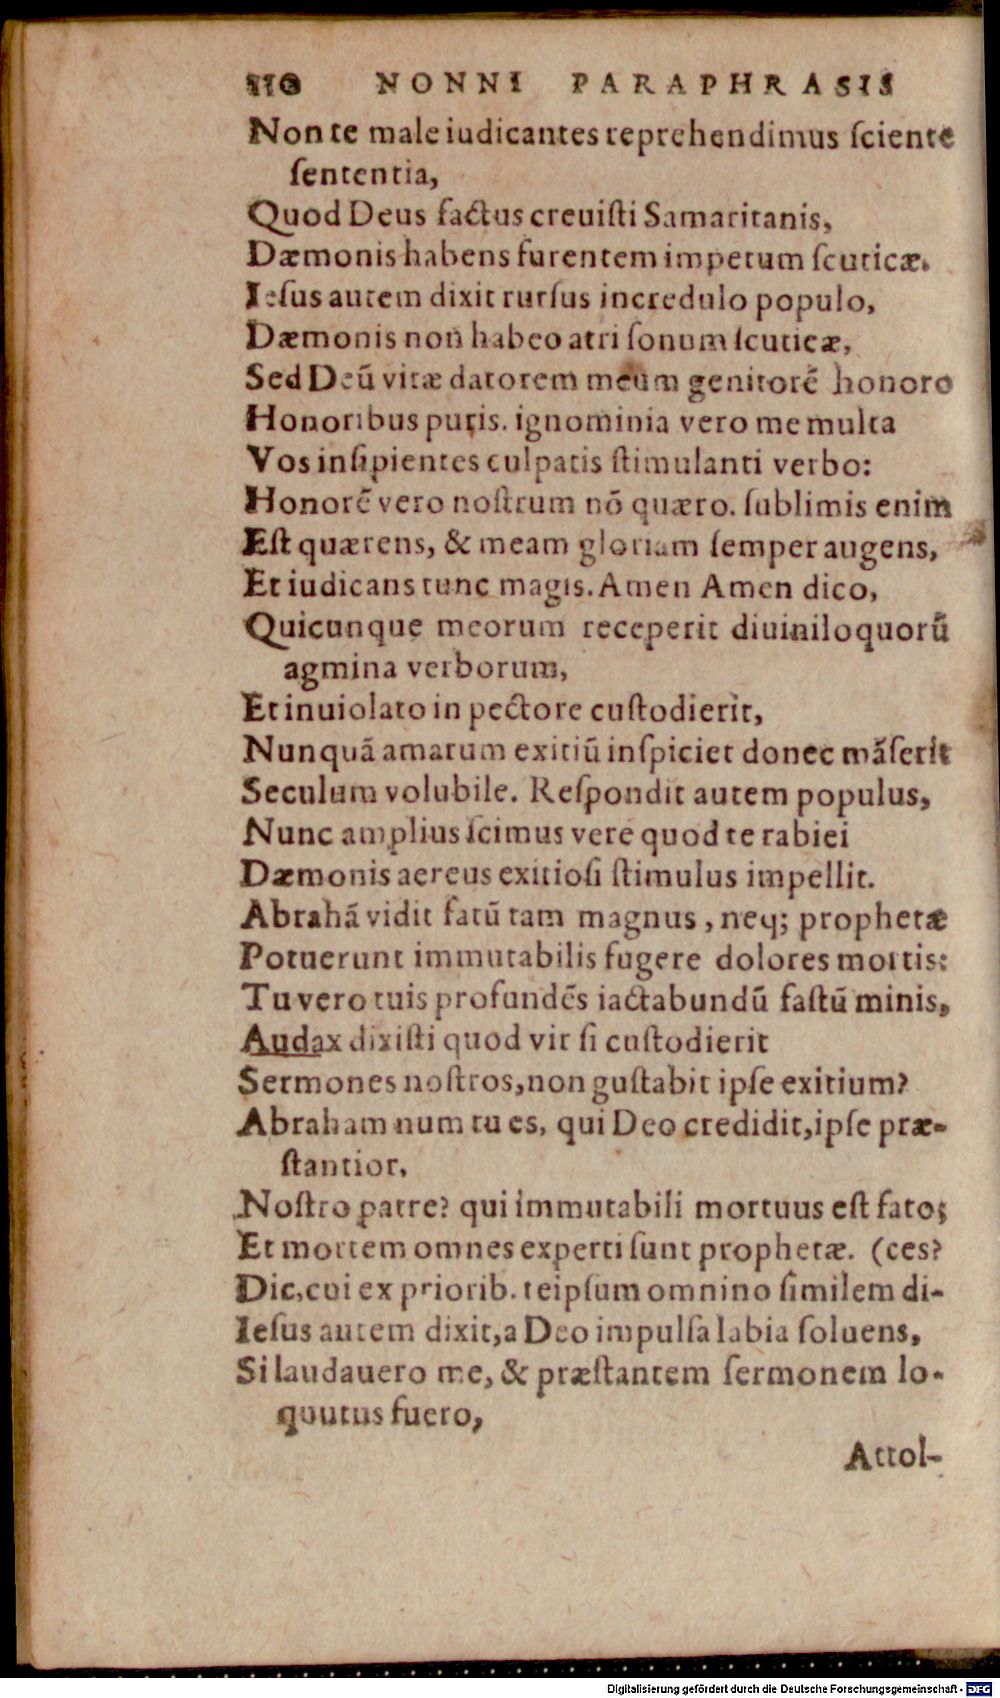 110 NONNI PARAPHRASIS
Non te male iudicantes reprehendimus ſciente
ſententia,
Quod Deus factus creuiſti Samaritanis,
Dæmonis habens furentem impetum ſcuticæ.
Ieſus autem dixit rurſus incredulo populo,
Dæmonis non habeo atri ſonum ſcuticæ,
Sed Deū vitæ datorem meum genitorē honoro
Honoribus puris. ignominia vero me multa
Vos inſipientes culpatis ſtimulanti verbo:
Honorē vero noſtrum nō quæro. ſublimis enim
Eſt quærens, & meam gloriam ſemper augens,
Et iudicans tunc magis. Amen Amen dico,
Quicunque meorum receperit diuiniloquorū
agmina verborum,
Et inuiolato in pectore cuſtodierit,
Nunquā amarum exitiū inſpiciet donec māſerit
Seculum volubile. Reſpondit autem populus,
Nunc amplius ſcimus vere quod te rabiei
Dæmonis aereus exitioſi ſtimulus impellit.
Abrahā vidit fatū tam magnus, neq; prophetæ
Potuerunt immutabilis fugere dolores mortis:
Tu vero tuis profundēs iactabundū faſtū minis,
Audax dixiſti quod vir ſi cuſtodierit
Sermones noſtros, non guſtabit ipſe exitium?
Abraham num tu es, qui Deo credidit, ipſe præ-
ſtantior,
Noſtro patre? qui immutabili mortuus eſt fato;
Et mortem omnes experti ſunt prophetæ. (ces?
Dic, cui ex priorib. teipſum omnino ſimilem di-
Ieſus autem dixit, a Deo impulſa labia ſoluens,
Si laudauero me, & præſtantem ſermonem lo-
quutus fuero,
Attol-
Digitalisierung gefördert durch die Deutsche Forschungsgemeinschaft - DFG